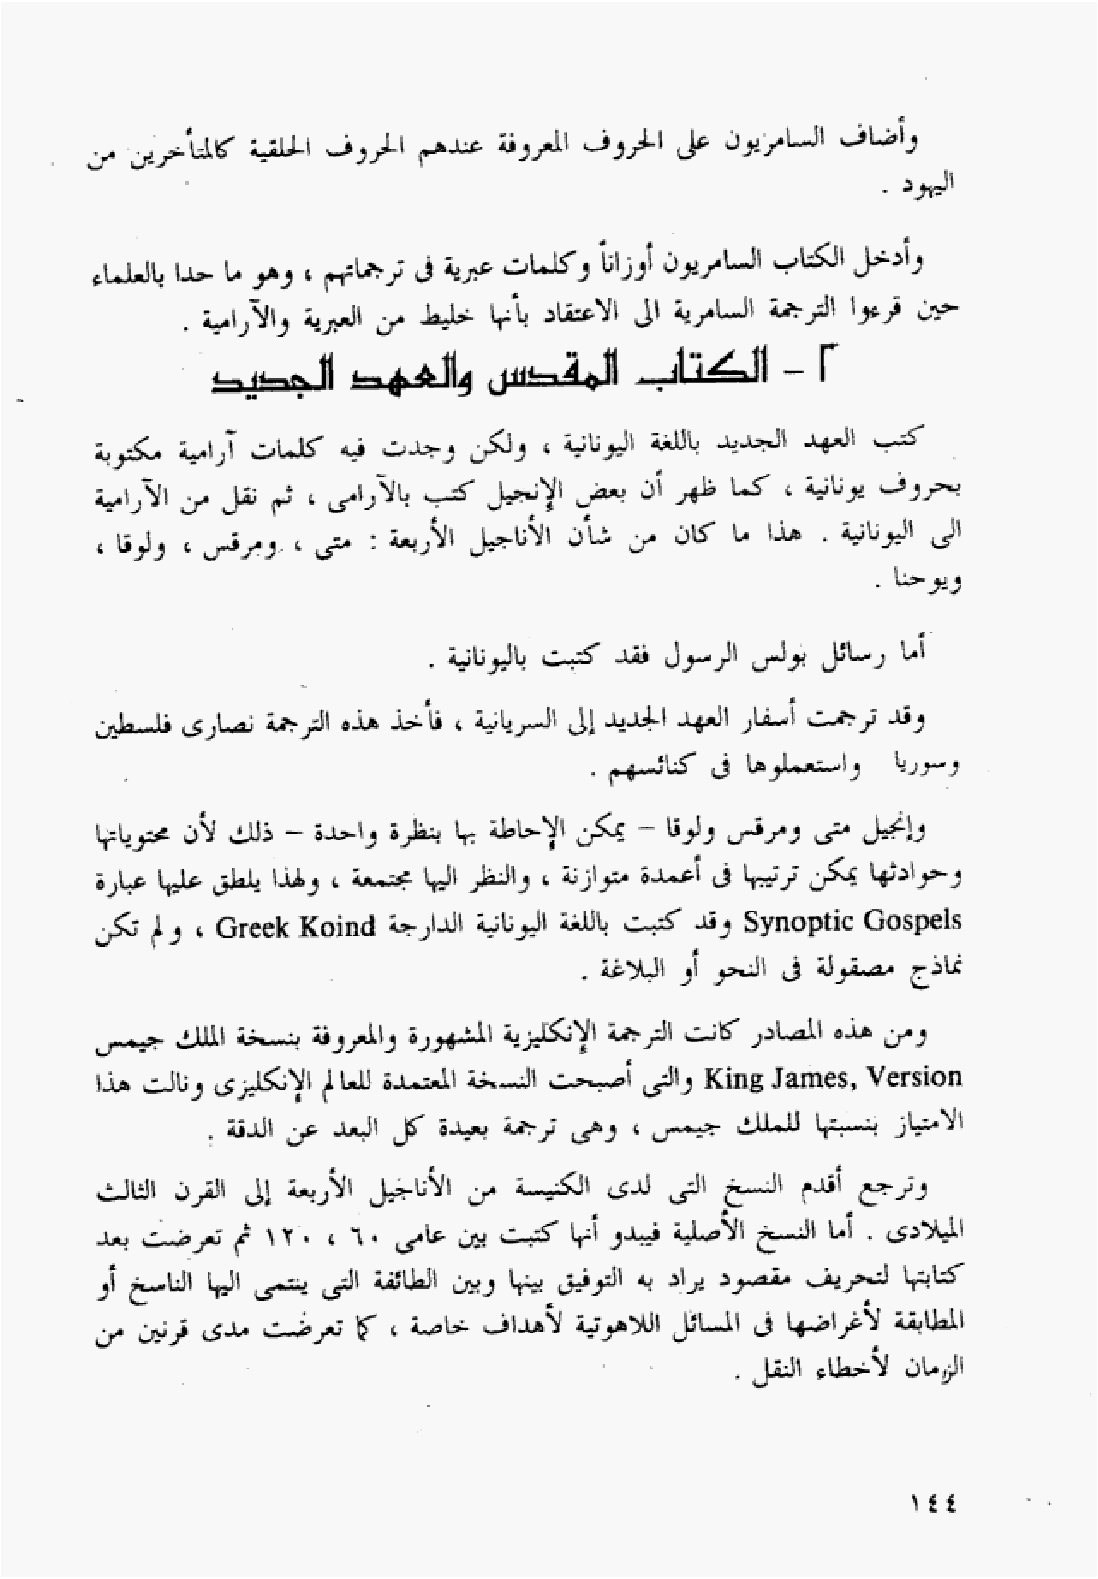 وأضاف السامزيون على الحروف المعروفة عندهم الحروف الحلقية كالمتأخرين من
اليهود .
وأدخل الكتاب السامريون أوزاناً وكلمات عبرية فى ترجماتهم ، وهو ما حدا بالعلماء
حين قرءوا الترجمة السامرية الى الاعتقاد بأنها خليط من العبرية والآرامية .
٢ - الكتاب المقدس والعهد الجديد
كتب العهد الجديد باللغة اليونانية ، ولكن وجدت فيه كلمات آرامية مكتوبة
بحروف يونانية ، كما ظهر أن بعض الإنجيل كتب بالآرامى ، ثم نقل من الآرامية
الى اليونانية . هذا ما كان من شأن الأناجيل الأربعة : متى ، ومرقس ، ولوقا ،
ويوحنا .
أما رسائل بولس الرسول فقد كتبت باليونانية .
وقد ترجمت أسفار العهد الجديد إلى السريانية ، فأخذ هذه الترجمة نصارى فلسطين
وسوريا واستعملوها فى كنائسهم .
وإنجيل متى ومرقس ولوقا - يمكن الإحاطة بها بنظرة واحدة - ذلك لأن محتوياتها
وحوادثها يمكن ترتيبها فى أعمدة متوازنة ، والنظر اليها مجتمعة ، ولهذا يلطق عليها عبارة
Synoptic Gospels وقد كتبت باللغة اليونانية الدارجة Greek Koind ، ولم تكن
نماذج مصقولة فى النحو أو البلاغة .
ومن هذه المصادر كانت الترجمة الإنكليزية المشهورة والمعروفة بنسخة الملك جيمس
King James, Version والتى أصبحت النسخة المعتمدة للعالم الإنكليزى ونالت هذا
الامتياز بنسبتها للملك جيمس ، وهى ترجمة بعيدة كل البعد عن الدقة .
وترجع أقدم النسخ التى لدى الكنيسة من الأناجيل الأربعة إلى القرن الثالث
الميلادى . أما النسخ الأصلية فيبدو أنها كتبت بين عامى ٦٠ ، ١٢٠ ثم تعرضت بعد
كتابتها لتحريف مقصود يراد به التوفيق بينها وبين الطائفة التى ينتمى اليها الناسخ أو
المطابقة لأغراضها فى المسائل اللاهوتية لأهداف خاصة ، كما تعرضت مدى قرنين من
الزمان لأخطاء النقل .
١٤٤